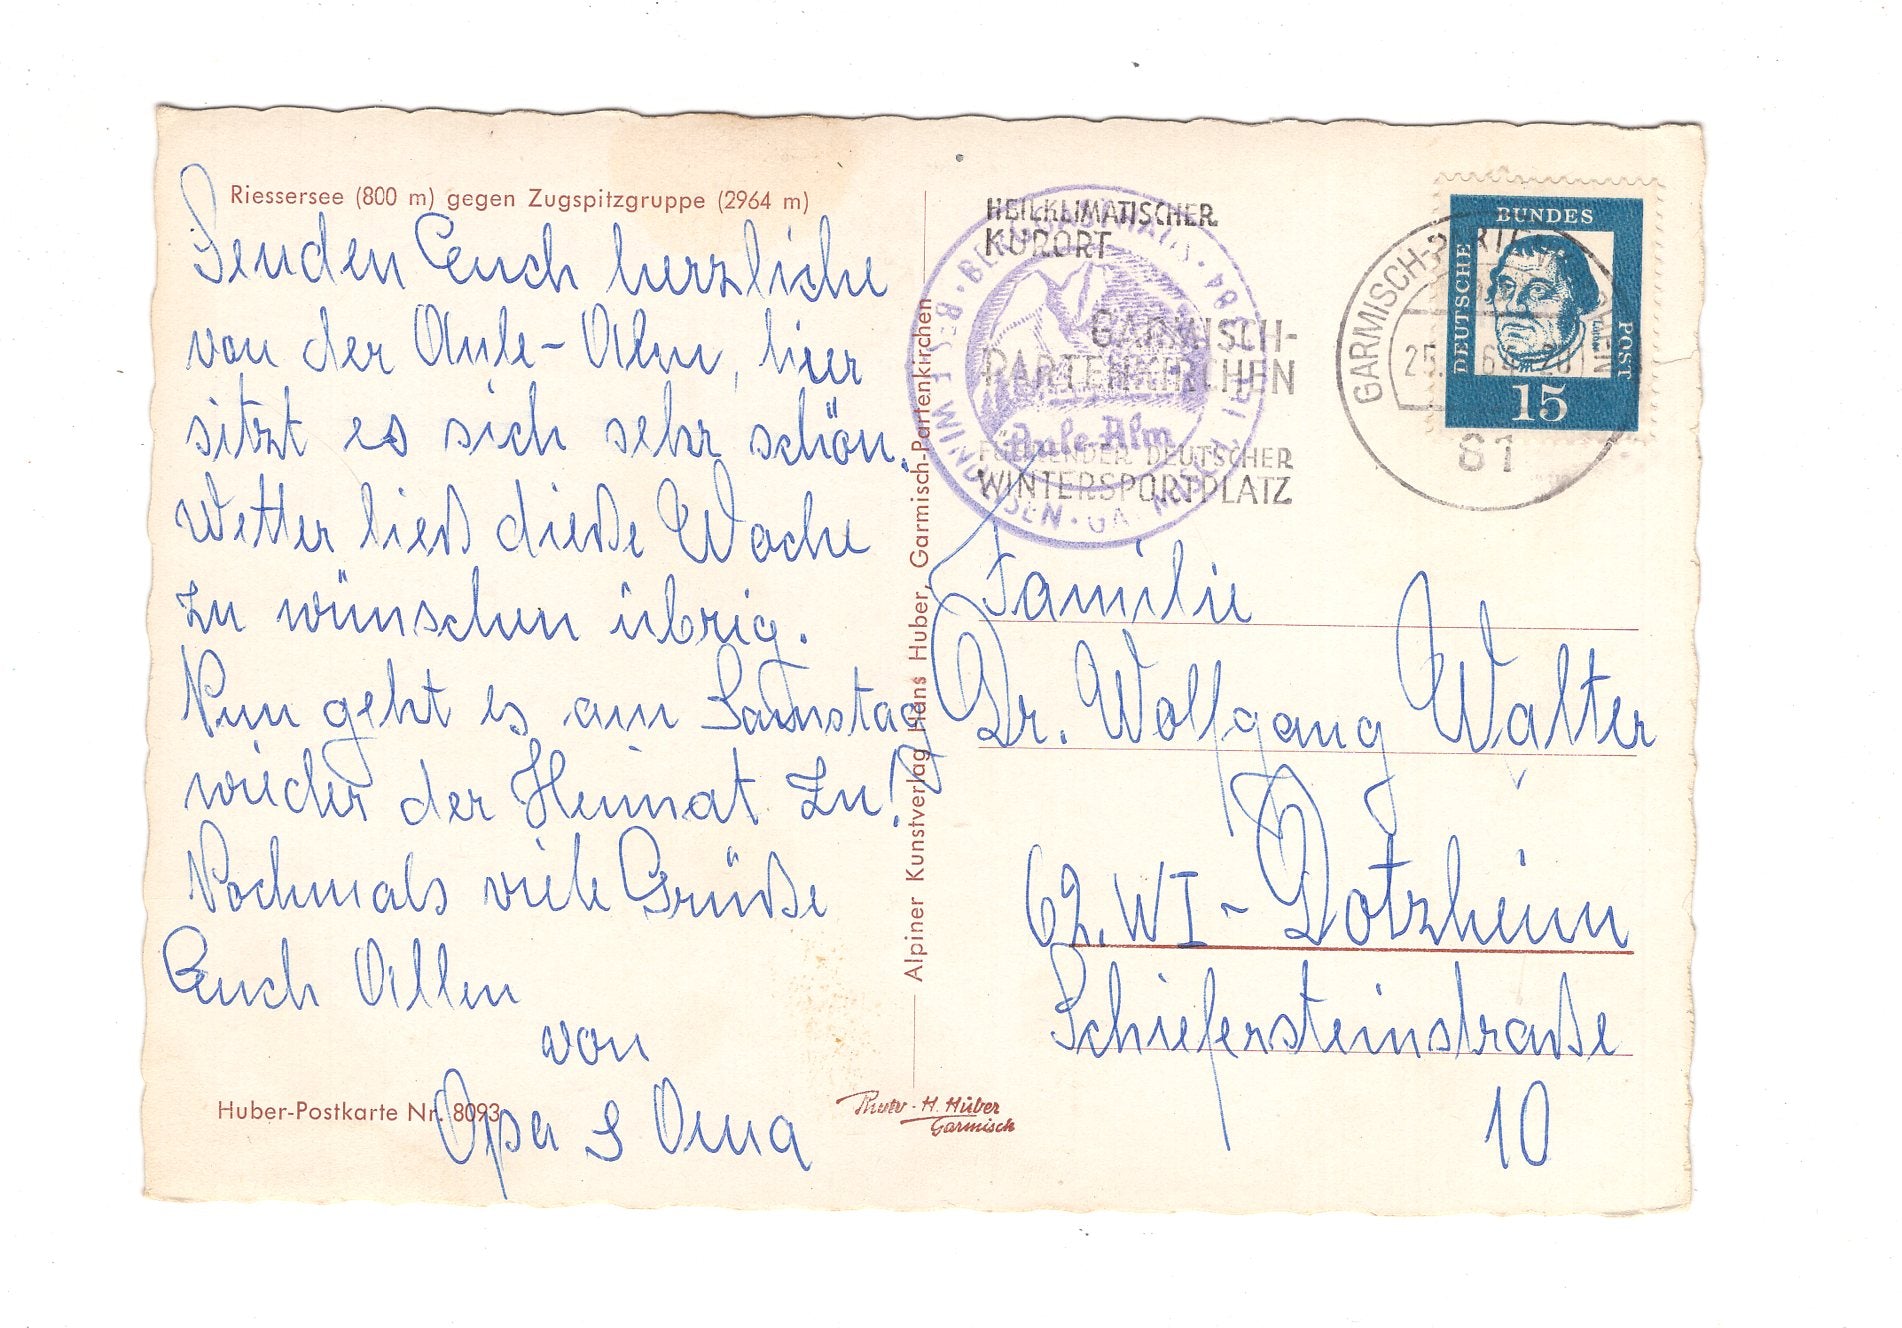 Riessersee (800 m) gegen Zugspitzgruppe (2964 m)
Senden Euch herzliche
von der Aule-Alm, hier
sitzt es sich sehr schön.
Wetter ließ dieße Woche
zu wünschen übrig.
Nun geht es am Samstag
wieder der Heimat zu!
Nochmals viele Grüße
Euch Allen
von
Opa & Oma
Huber-Postkarte Nr. 8093
Alpiner Kunstverlag Hans Huber, Garmisch-Partenkirchen
H. Huber
Garmisch
HEILKLIMATISCHER
KURORT
GARMISCH-
PARTENKIRCHEN
FÜHRENDER DEUTSCHER
WINTERSPORTPLATZ
Aule-Alm
GARMISCH-PARTENKIRCHEN
81
DEUTSCHE
BUNDES
POST
15
Familie
Dr. Wolfgang Walter
62. WI-Dotzheim
Schiefersteinstraße
10